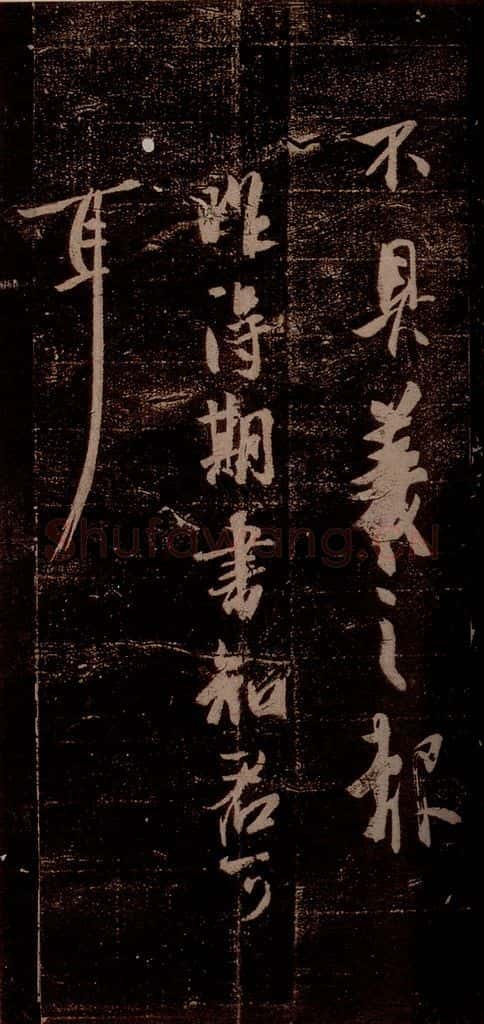 不具羲之報
昨得期書知君可
耳
Shufawang.cn